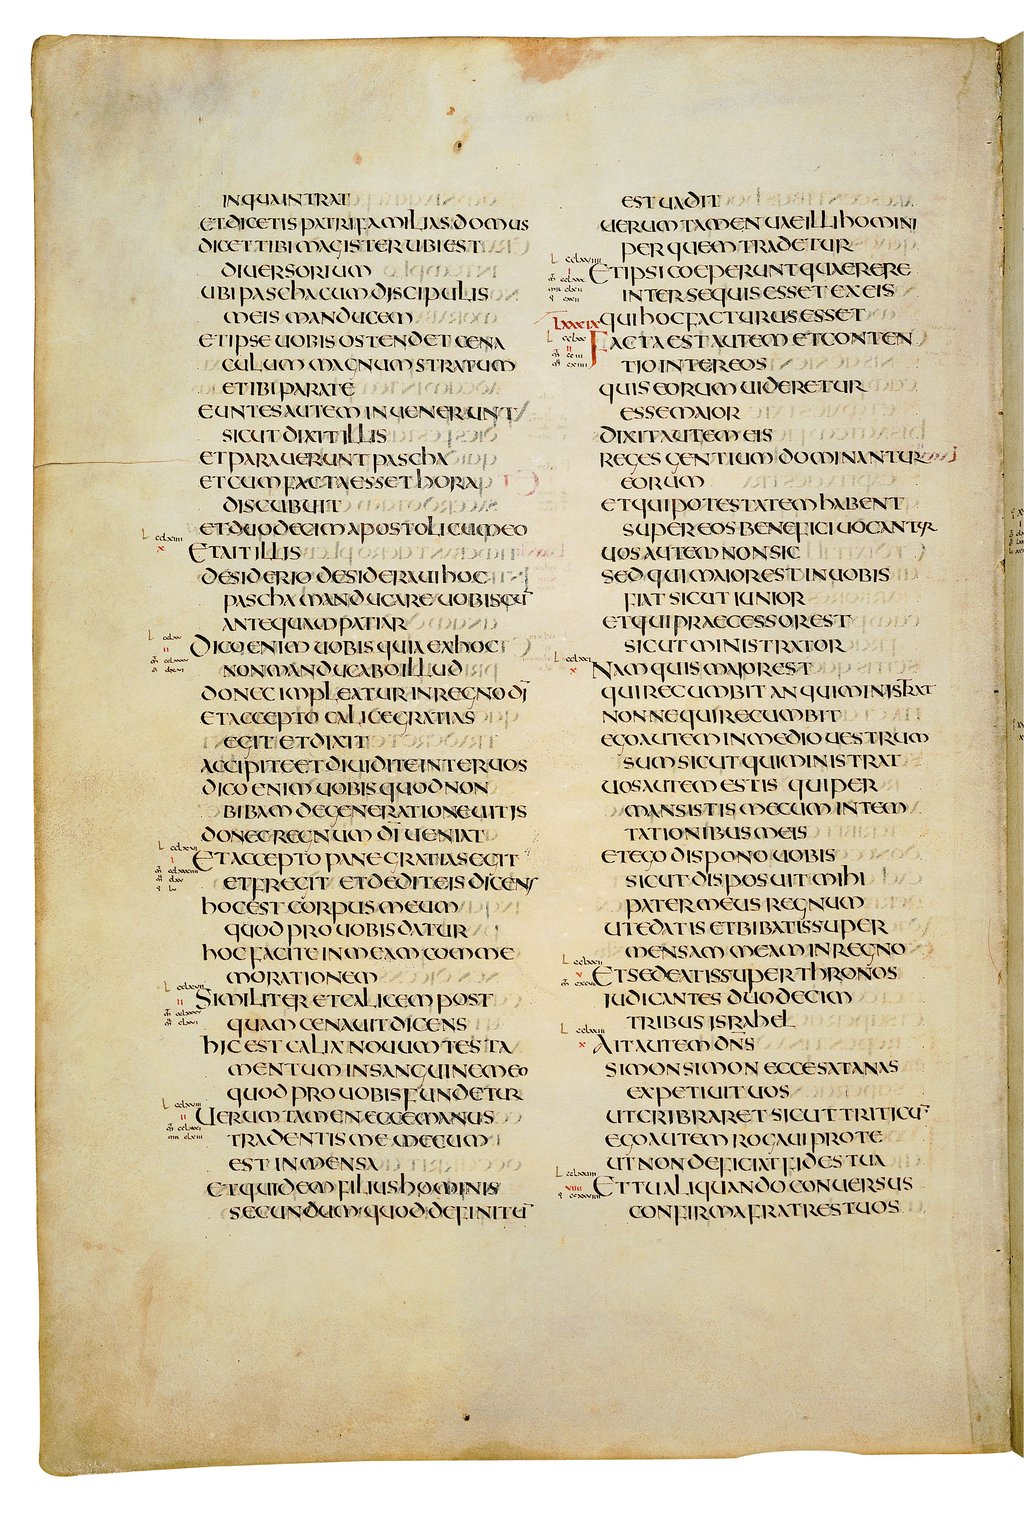 IN QUA INTRAT
ET DICETIS PATRI FAMILIAS DOMUS
DICET TIBI MAGISTER UBI EST
DIVERSORIUM
UBI PASCHA CUM DISCIPULIS
MEIS MANDUCEM
ET IPSE UOBIS OSTENDET CENA
CULUM MAGNUM STRATUM
ET IBI PARATE
EUNTES AUTEM INUENERUNT
SICUT DIXIT ILLIS
ET PARAUERUNT PASCHA
ET CUM FACTA ESSET HORA
DISCUBUIT
ET DUODECIM APOSTOLI CUM EO
ET AIT ILLIS
DESIDERIO DESIDERAUI HOC
PASCHA MANDUCARE UOBISCU̅
ANTEQUAM PATIAR
DICO ENIM UOBIS QUIA EX HOC
NON MANDUCABO ILLUD
DONEC IMPLEATUR IN REGNO DI̅
ET ACCEPTO CALICE GRATIAS
EGIT ET DIXIT
ACCIPITE ET DIUIDITE INTER UOS
DICO ENIM UOBIS QUOD NON
BIBAM DE GENERATIONE UITIS
DONEC REGNUM DI̅ UENIAT
ET ACCEPTO PANE GRATIAS EGIT
ET FREGIT ET DEDIT EIS DICENS
HOC EST CORPUS MEUM
QUOD PRO UOBIS DATUR
HOC FACITE IN MEAM COMME
MORATIONEM
SIMILITER ET CALICEM POST
QUAM CENAUIT DICENS
HIC EST CALIX NOUUM TESTA
MENTUM IN SANGUINE MEO
QUOD PRO UOBIS FUNDETUR
UERUM TAMEN ECCE MANUS
TRADENTIS ME MECUM
EST IN MENSA
ET QUIDEM FILIUS HOMINIS
SECUNDUM QUOD DEFINITU̅
EST UADIT
UERUM TAMEN UAE ILLI HOMINI
PER QUEM TRADETUR
ET IPSI COEPERUNT QUAERERE
INTER SE QUIS ESSET EX EIS
QUI HOC FACTURUS ESSET
LXXXIX
FACTA EST AUTEM ET CONTEN
TIO INTER EOS
QUIS EORUM UIDERETUR
ESSE MAIOR
DIXIT AUTEM EIS
REGES GENTIUM DOMINANTUR
EORUM
ET QUI POTESTATEM HABENT
SUPER EOS BENEFICI UOCANTUR
UOS AUTEM NON SIC
SED QUI MAIOR EST IN UOBIS
FIAT SICUT IUNIOR
ET QUI PRAECESSOR EST
SICUT MINISTRATOR
NAM QUIS MAIOR EST
QUI RECUMBIT AN QUI MINISTRAT
NONNE QUI RECUMBIT
EGO AUTEM IN MEDIO UESTRUM
SUM SICUT QUI MINISTRAT
UOS AUTEM ESTIS QUI PER
MANSISTIS MECUM IN TEM
TATIONIBUS MEIS
ET EGO DISPONO UOBIS
SICUT DISPOSUIT MIHI
PATER MEUS REGNUM
UT EDATIS ET BIBATIS SUPER
MENSAM MEAM IN REGNO
ET SEDEATIS SUPER THRONOS
IUDICANTES DUODECIM
TRIBUS ISRAHEL
AIT AUTEM DN̅S
SIMON SIMON ECCE SATANAS
EXPETIUIT UOS
UT CRIBRARET SICUT TRITICU̅
EGO AUTEM ROGAUI PRO TE
UT NON DEFICIAT FIDES TUA
ET TU ALIQUANDO CONUERSUS
CONFIRMA FRATRES TUOS